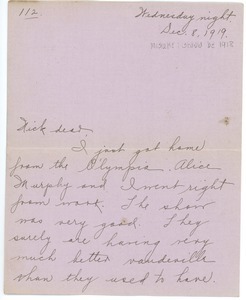 112
Wednesday night
Dec. 8, 1919.
Dick dear,
I just got home
from the Olympia. Alice
Murphy and I went right
from work. The show
was very good. They
surely are having very
much better vaudeville
than they used to have.